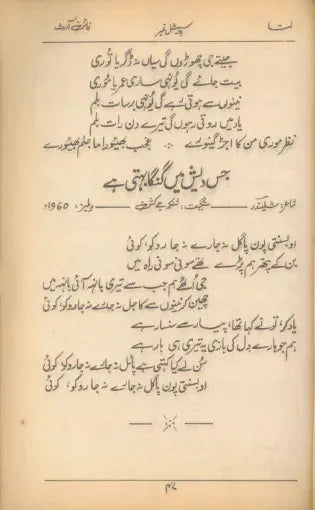 لتا سپیشل نمبر فائن آرٹ
جیتے جی چھوڑوں گی سیاں نہ ڈگریا توری
بیت جائے گی یونہی ساری عمریا موری
نینوں سے ہوتی رہے گی یونہی برسات بلم
یاد میں روتی رہوں گی تیرے دن رات بلم
نظر موری من کا اجڑ گینورے غضب بھیئو راما جلم بھیئورے
جس دیش میں گنگا بہتی ہے
شاعر: شیلندر سنگیت: شنکر جے کشن ریلیز: 1960ء
او بسنتی پون پاگل نہ جا رے نہ جا روکو، کوئی
بن کے پتھر ہم پڑے تھے سونی سونی راہ میں
جی اٹھے ہم جب سے تیری بانہہ آئی بانہہ میں
چھین کر نینوں سے کاجل نہ جا رے نہ جا روکو، کوئی
یاد کر، تونے کہا تھا، پیار سے سنسار ہے
ہم جو ہارے دل کی بازی یہ تیری ہی ہار ہے
سن لے کیا کہتی ہے پائل نہ جا رے نہ جا روکو، کوئی
او بسنتی پون پاگل نہ جا رے نہ جا روکو، کوئی
۴۷